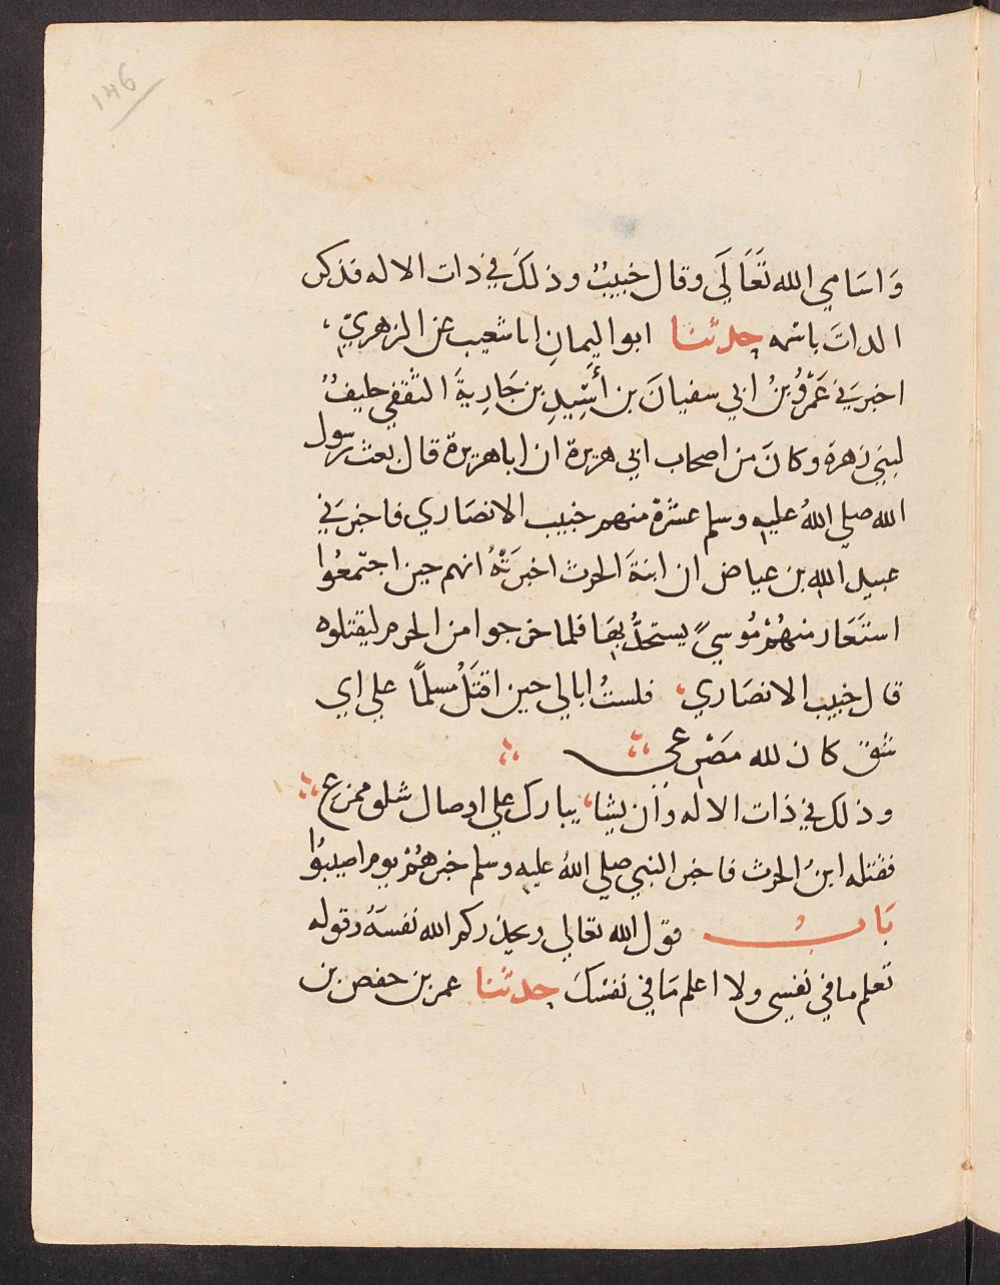 146
وَاسَامي الله تَعَالَي وقال خبيبٌ وذلكَ في ذات الاله فذكر
الذاتَ باسْمه حدثنا ابو اليمانِ انا شعيب عن الزهريّ،
اخبرَني عَمْرُو بنُ ابي سفيانَ بن أَسِيدِ بن جَارِيةَ الثقفي حليفٌ
لبني زهرة وكانَ من اصحاب ابي هريرة ان ابا هريرة قال بعث رسول
الله صلي اللهُ عليه وسلم عشرة منهم خبيب الانصَاري فاخبرَني
عبيد الله بن عياض ان ابنةَ الحرث اخبرَتْهُ انهم حين اجتمعُوا
استَعَار منهُمْ مُوسيً يستحدُّ بهَا فلما خرجوا من الحرم ليقتلوه
قال خبيب الانصَاري، فلستُ ابالي حين اقتَلُ مسلمًا علي اي
شق كان لله مَصْرعي
وذلك في ذات الاله وَاِن يشا، يبارك علي اوصال شلو ممزع
فقتله ابنُ الحرث فاخبر النبي صلي اللهُ عليه وسلم خبرهُمْ يوم اصيبُوا
بَابُ قول الله تعالي ويحذركم الله نفسَهُ وقوله
تعلم ما في نفسي ولا اعلم مَا في نفسكَ حدثنا عمر بن حفص بن